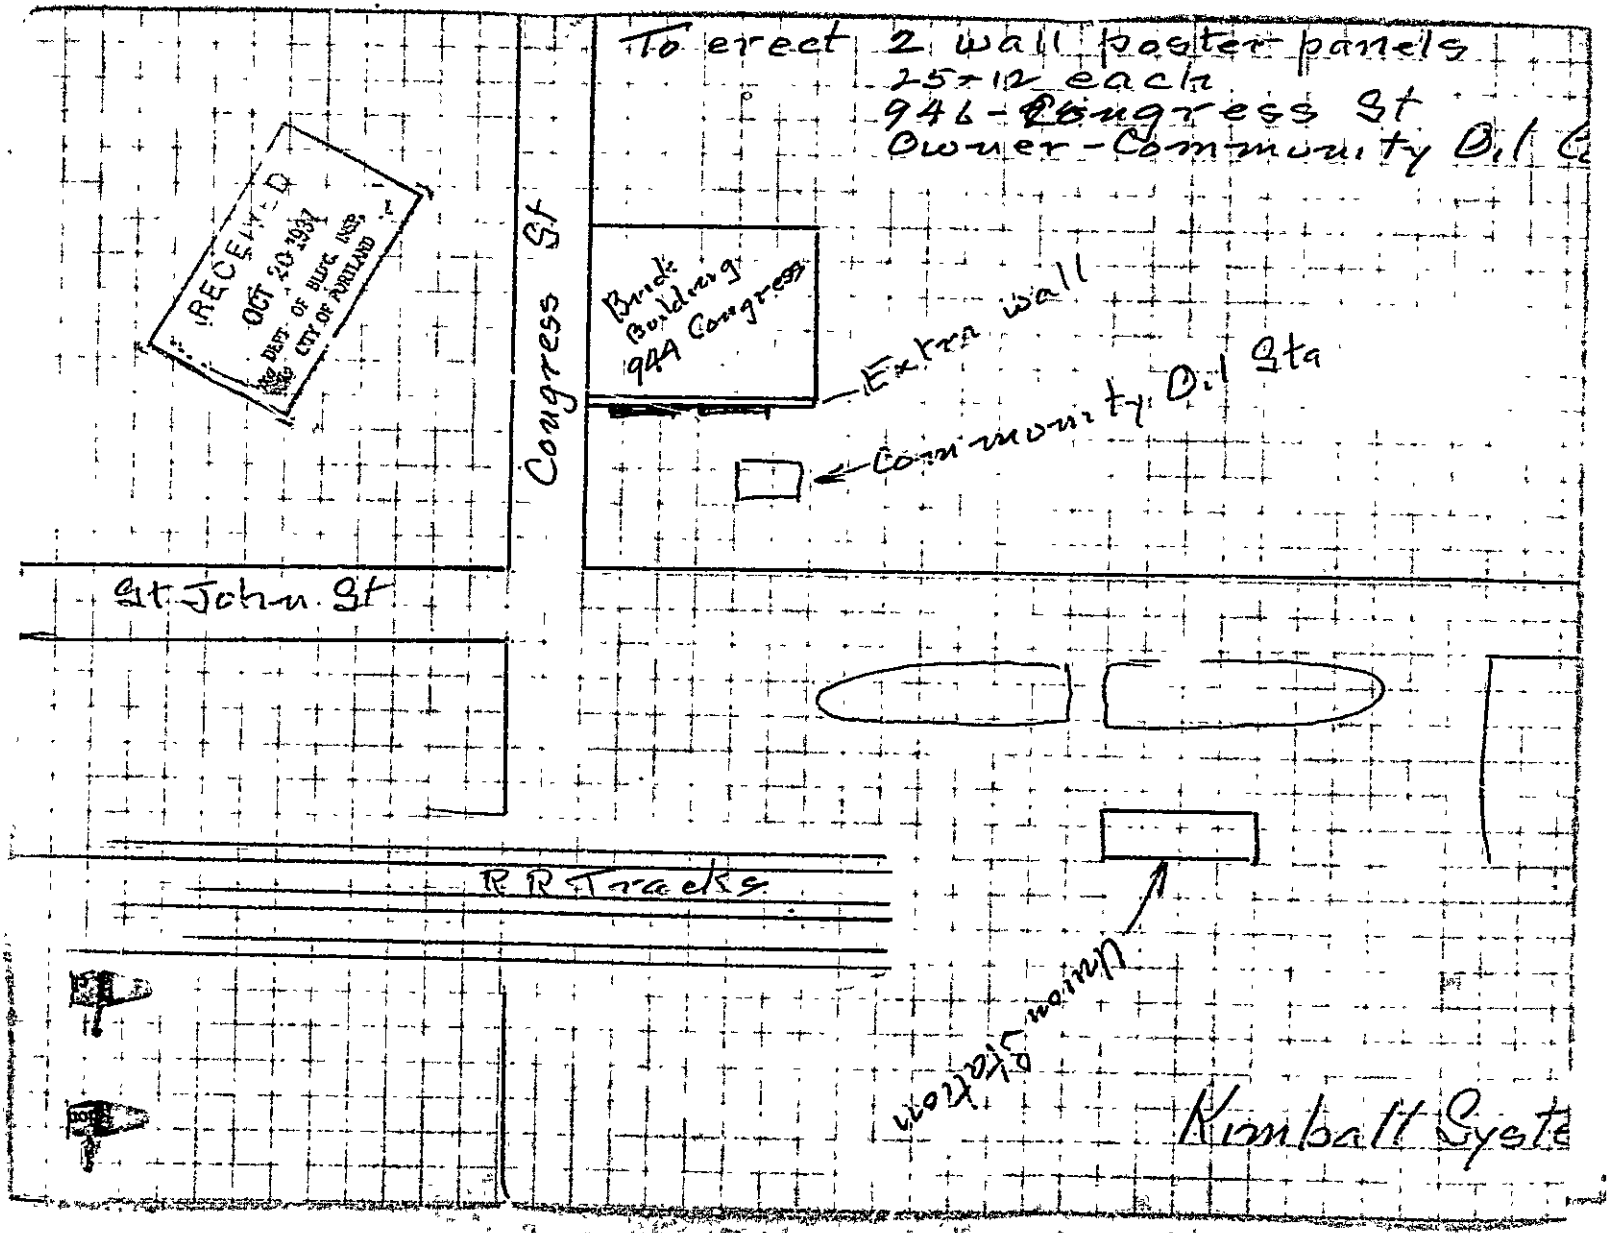 To erect 2 wall poster panels
25×12 each
946-Congress St
Owner-Community Oil Co
RECEIVED
OCT 20 1937
DEPT. OF BLDG. INSP.
CITY OF PORTLAND
Congress St
Brick
Building
944 Congress
Extra wall
Community Oil Sta
St John St
R R Tracks
Union Station
Kimball Syste